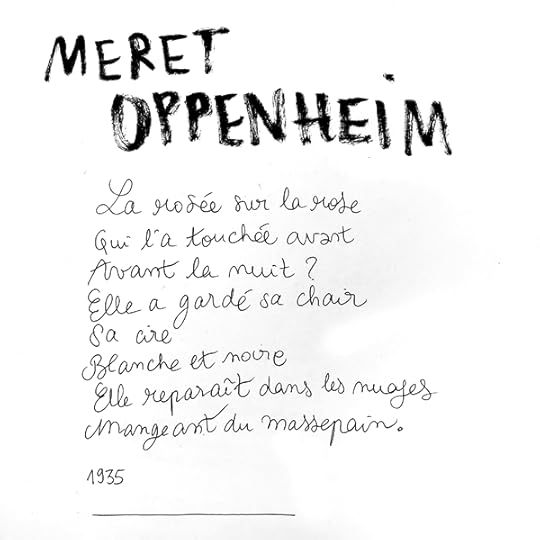 MERET
OPPENHEiM
La rosée sur la rose
Qui l'a touchée avant
Avant la nuit ?
Elle a gardé sa chair
Sa cire
Blanche et noire
Elle reparaît dans les nuages
Mangeant du massepain.
1935